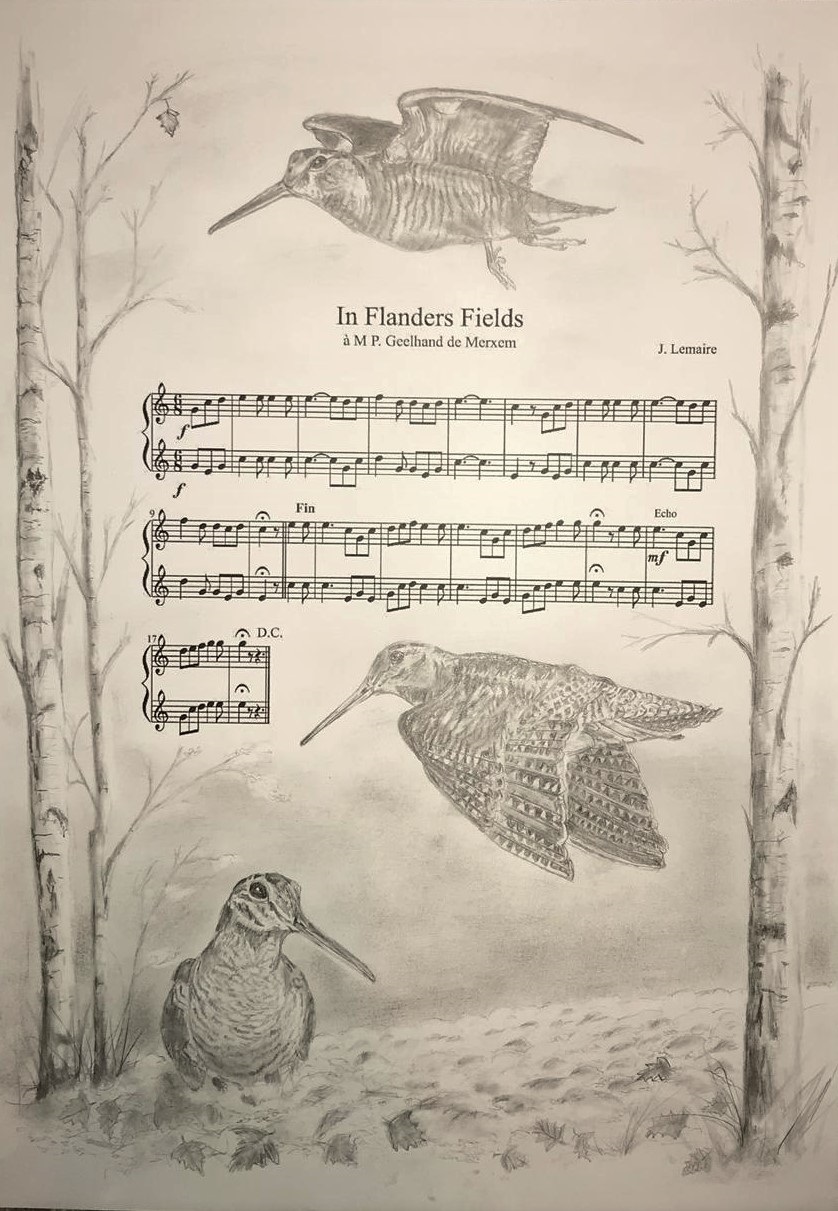 In Flanders Fields
à M P. Geelhand de Merxem
J. Lemaire
6 8
f
6 8
f
9
Fin
Echo
mf
17
D.C.